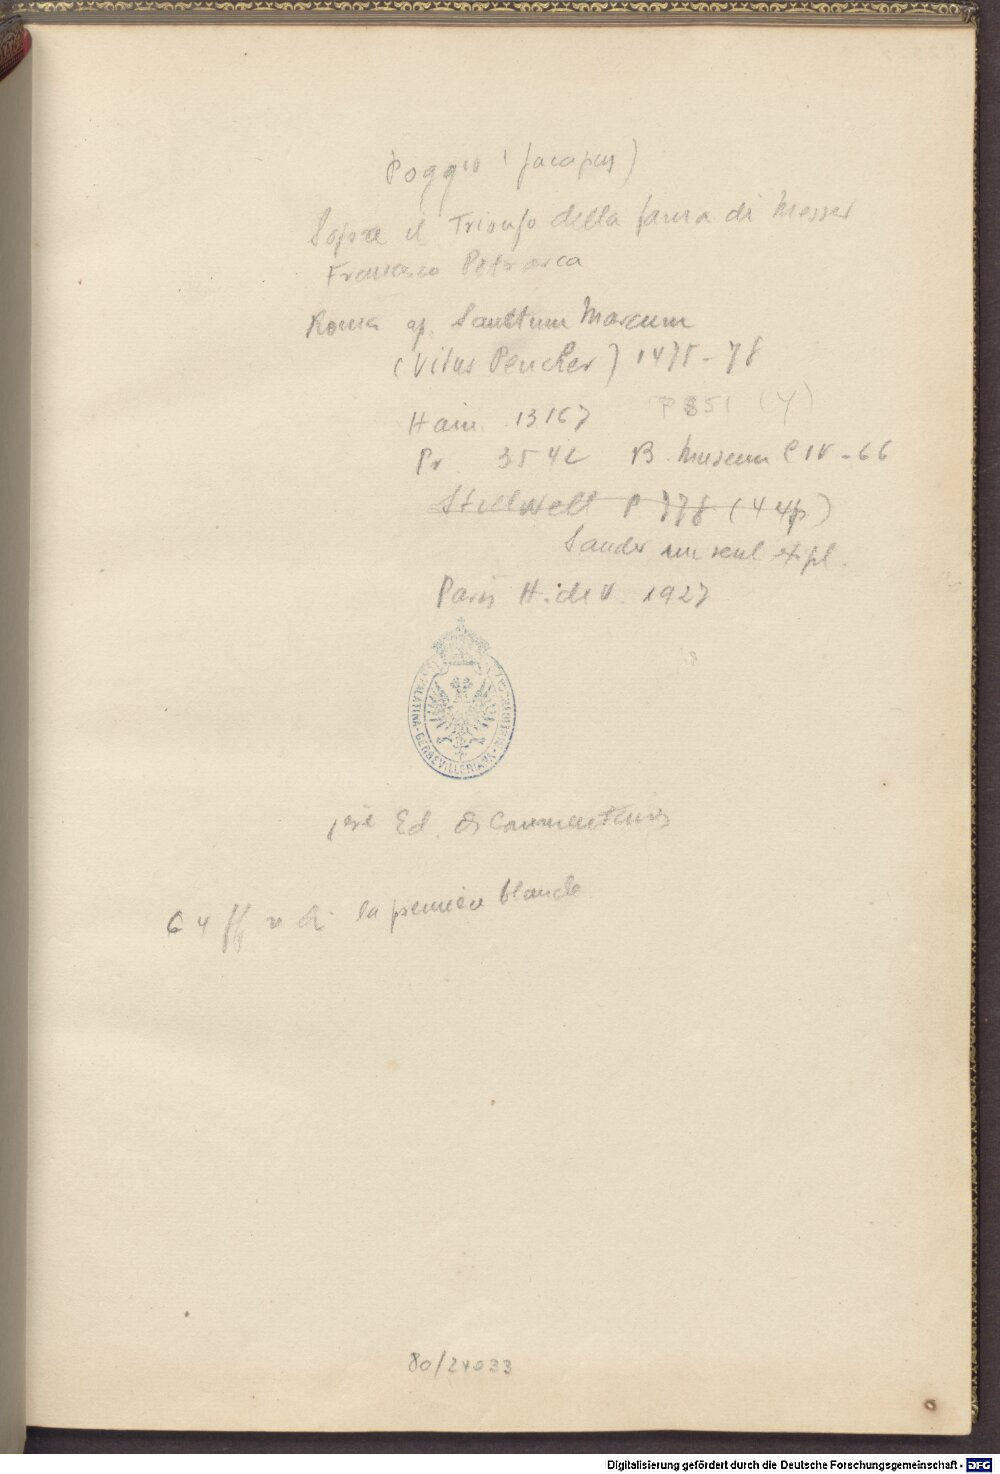 Poggio (Jacopus)
Sopra il Trionfo della fama di Messer
Francesco Petrarca
Roma ap. Sanctum Marcum
(Vitus Pencher) 1475-78
Hain 13167 P 851 (4)
Pr 3542 B. Museum C IV-66
Stillwell P 778 (4 )
Sander un seul expl.
Paris H. de V. 1927
PALATINA · GERBEVILLERIANA ·
1ère Ed. Commentaires
64 ff n ch. la première blanche
80/24033
Digitalisierung gefördert durch die Deutsche Forschungsgemeinschaft - DFG